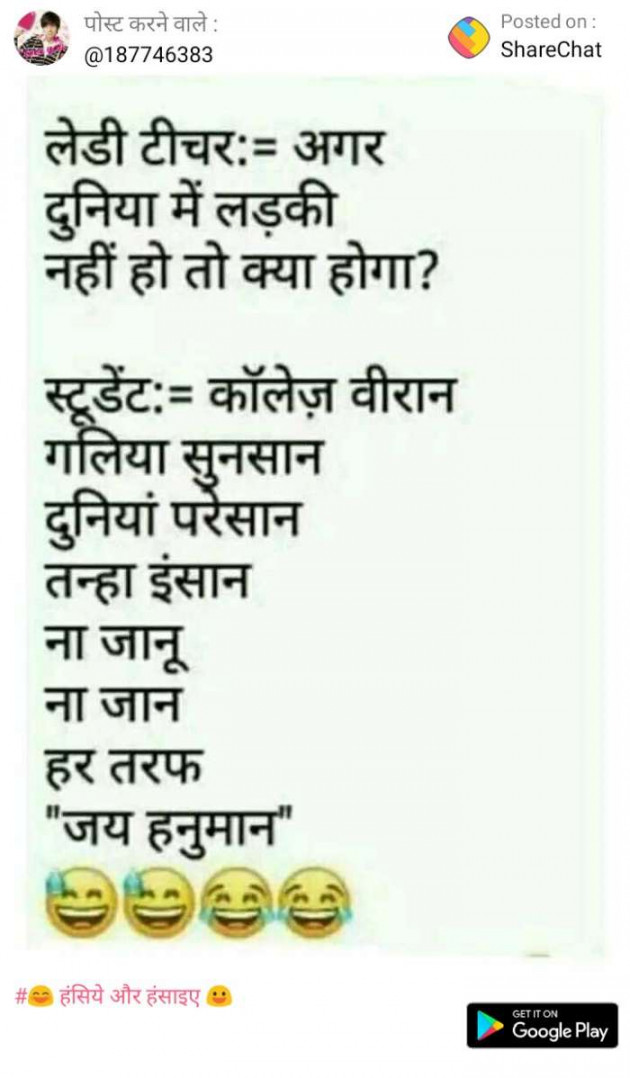 पोस्ट करने वाले :
@187746383
Posted on :
ShareChat
लेडी टीचर:= अगर
दुनिया में लड़की
नहीं हो तो क्या होगा?
स्टूडेंट:= कॉलेज़ वीरान
गलिया सुनसान
दुनियां परेसान
तन्हा इंसान
ना जानू
ना जान
हर तरफ
"जय हनुमान"
😅😅😂😂
#😄 हंसिये और हंसाइए 😃
GET IT ON
Google Play